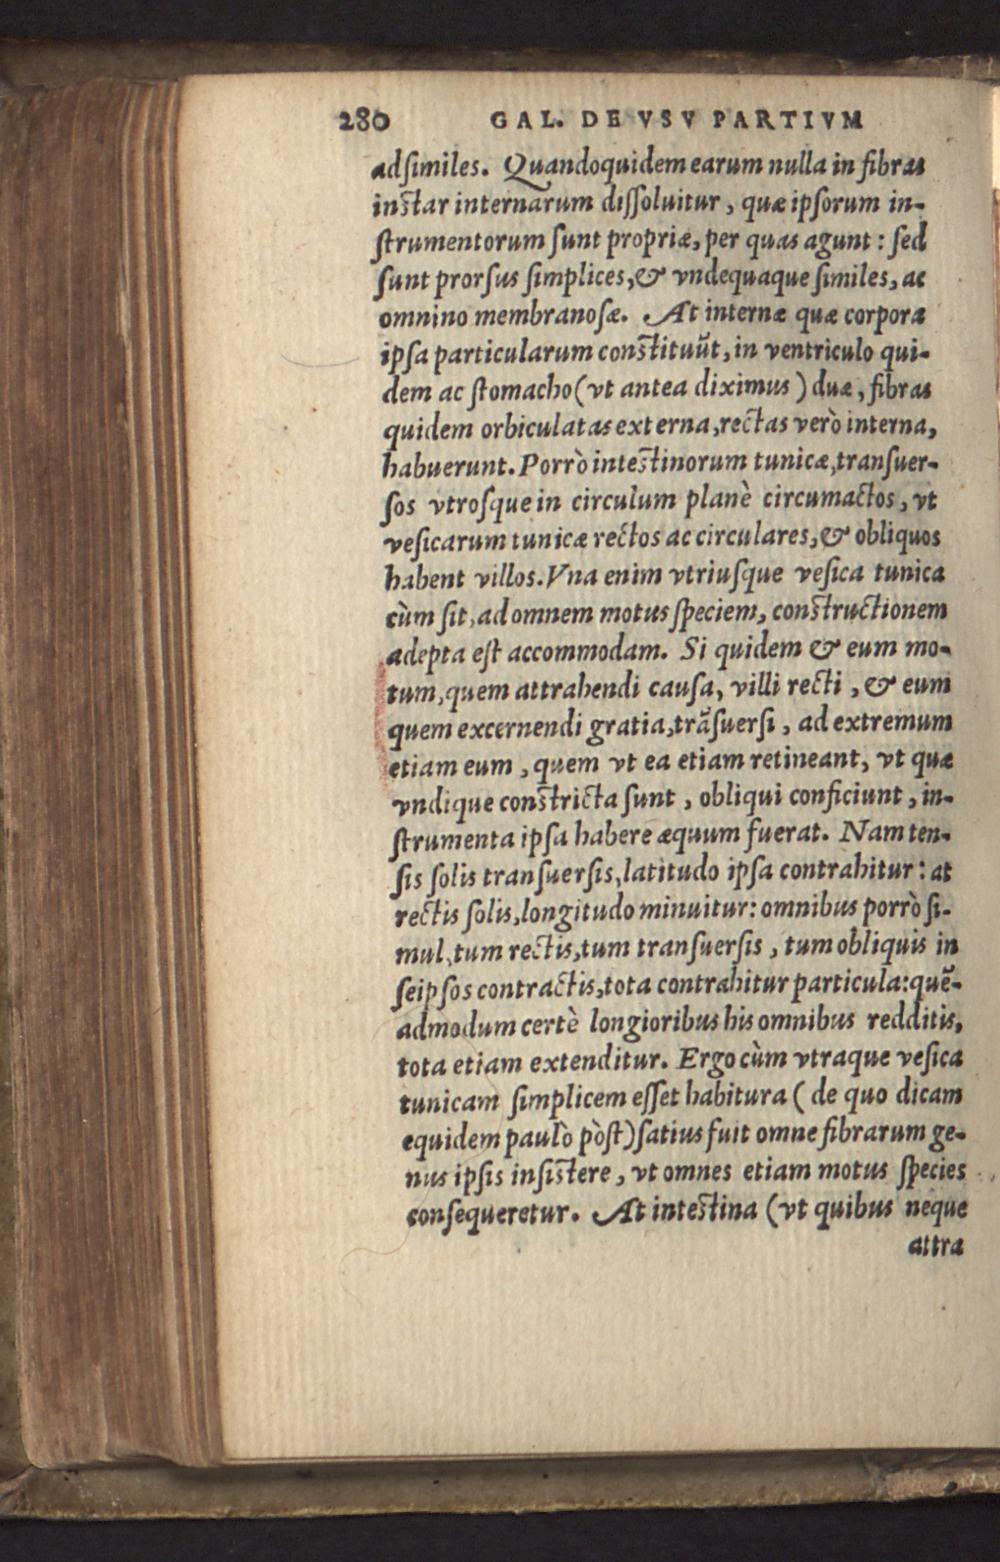 280 GAL. DE VSV PARTIVM
adſimiles. Quandoquidem earum nulla in fibras
inſtar internarum diſſoluitur, quæ ipſorum in-
ſtrumentorum ſunt propriæ, per quas agunt: ſed
ſunt prorſus ſimplices, & vndequaque ſimiles, ac
omnino membranoſæ. At internæ quæ corpora
ipſa particularum conſtituũt, in ventriculo qui-
dem ac ſtomacho (vt antea diximus) duæ, fibras
quidem orbiculatas externa, rectas verò interna,
habuerunt. Porrò inteſtinorum tunicæ, tranſuer-
ſos vtroſque in circulum planè circumactos, vt
veſicarum tunicæ rectos ac circulares, & obliquos
habent villos. Vna enim vtriuſque veſica tunica
cùm ſit, ad omnem motus ſpeciem, conſtructionem
adepta eſt accommodam. Si quidem & eum mo-
tum, quem attrahendi cauſa, villi recti, & eum
quem excernendi gratia, trãſuerſi, ad extremum
etiam eum, quem vt ea etiam retineant, vt quæ
vndique conſtricta ſunt, obliqui conficiunt, in-
ſtrumenta ipſa habere æquum fuerat. Nam ten-
ſis ſolis tranſuerſis, latitudo ipſa contrahitur: at
rectis ſolis, longitudo minuitur: omnibus porrò ſi-
mul, tum rectis, tum tranſuerſis, tum obliquis in
ſeipſos contractis, tota contrahitur particula: quẽ-
admodum certè longioribus his omnibus redditis,
tota etiam extenditur. Ergo cùm vtraque veſica
tunicam ſimplicem eſſet habitura (de quo dicam
equidem paulò pòſt) ſatius fuit omne fibrarum ge-
nus ipſis inſiſtere, vt omnes etiam motus ſpecies
conſequeretur. At inteſtina (vt quibus neque
attra